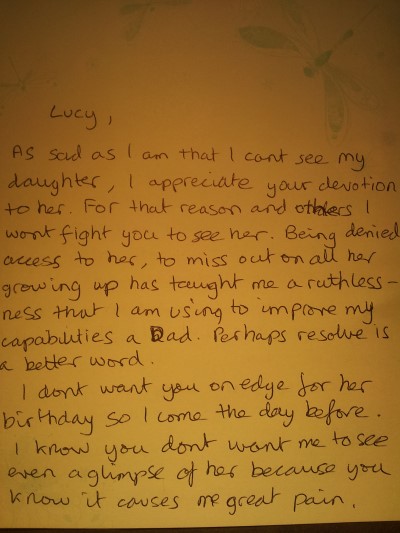 Lucy,
As sad as I am that I cant see my
daughter, I appreciate your devotion
to her. For that reason and others I
wont fight you to see her. Being denied
access to her, to miss out on all her
growing up has taught me a ruthless-
ness that I am using to improve my
capabilities a Dad. Perhaps resolve is
a better word.
I dont want you on edge for her
birthday so I come the day before.
I know you dont want me to see
even a glimpse of her because you
know it causes me great pain.